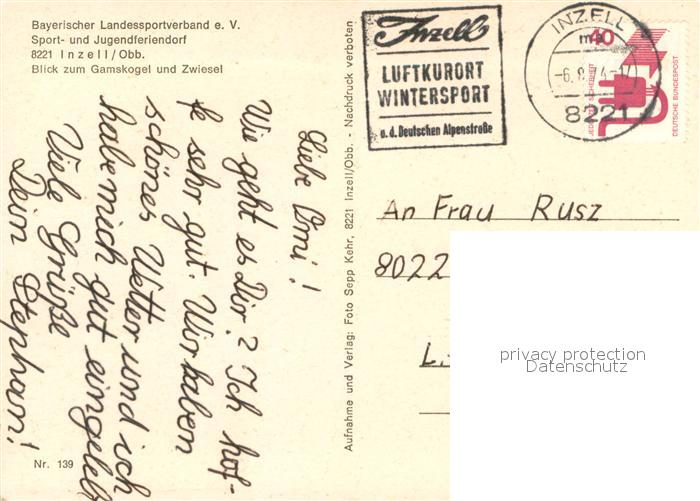 Bayerischer Landessportverband e. V.
Sport- und Jugendferiendorf
8221 Inzell/Obb.
Blick zum Gamskogel und Zwiesel
Liebe Omi!
Wie geht es Dir? Ich hof-
fe sehr gut. Wir haben
schönes Wetter und ich
habe mich gut eingelebt
Viele Grüße
Dein Stephan!
Nr. 139
Aufnahme und Verlag: Foto Sepp Kehr, 8221 Inzell/Obb. - Nachdruck verboten
Inzell
LUFTKURORT
WINTERSPORT
a.d. Deutschen Alpenstraße
INZELL
8221
40
JEDERZEIT SICHERHEIT
DEUTSCHE BUNDESPOST
An Frau Rusz
8022
L.
privacy protection
Datenschutz